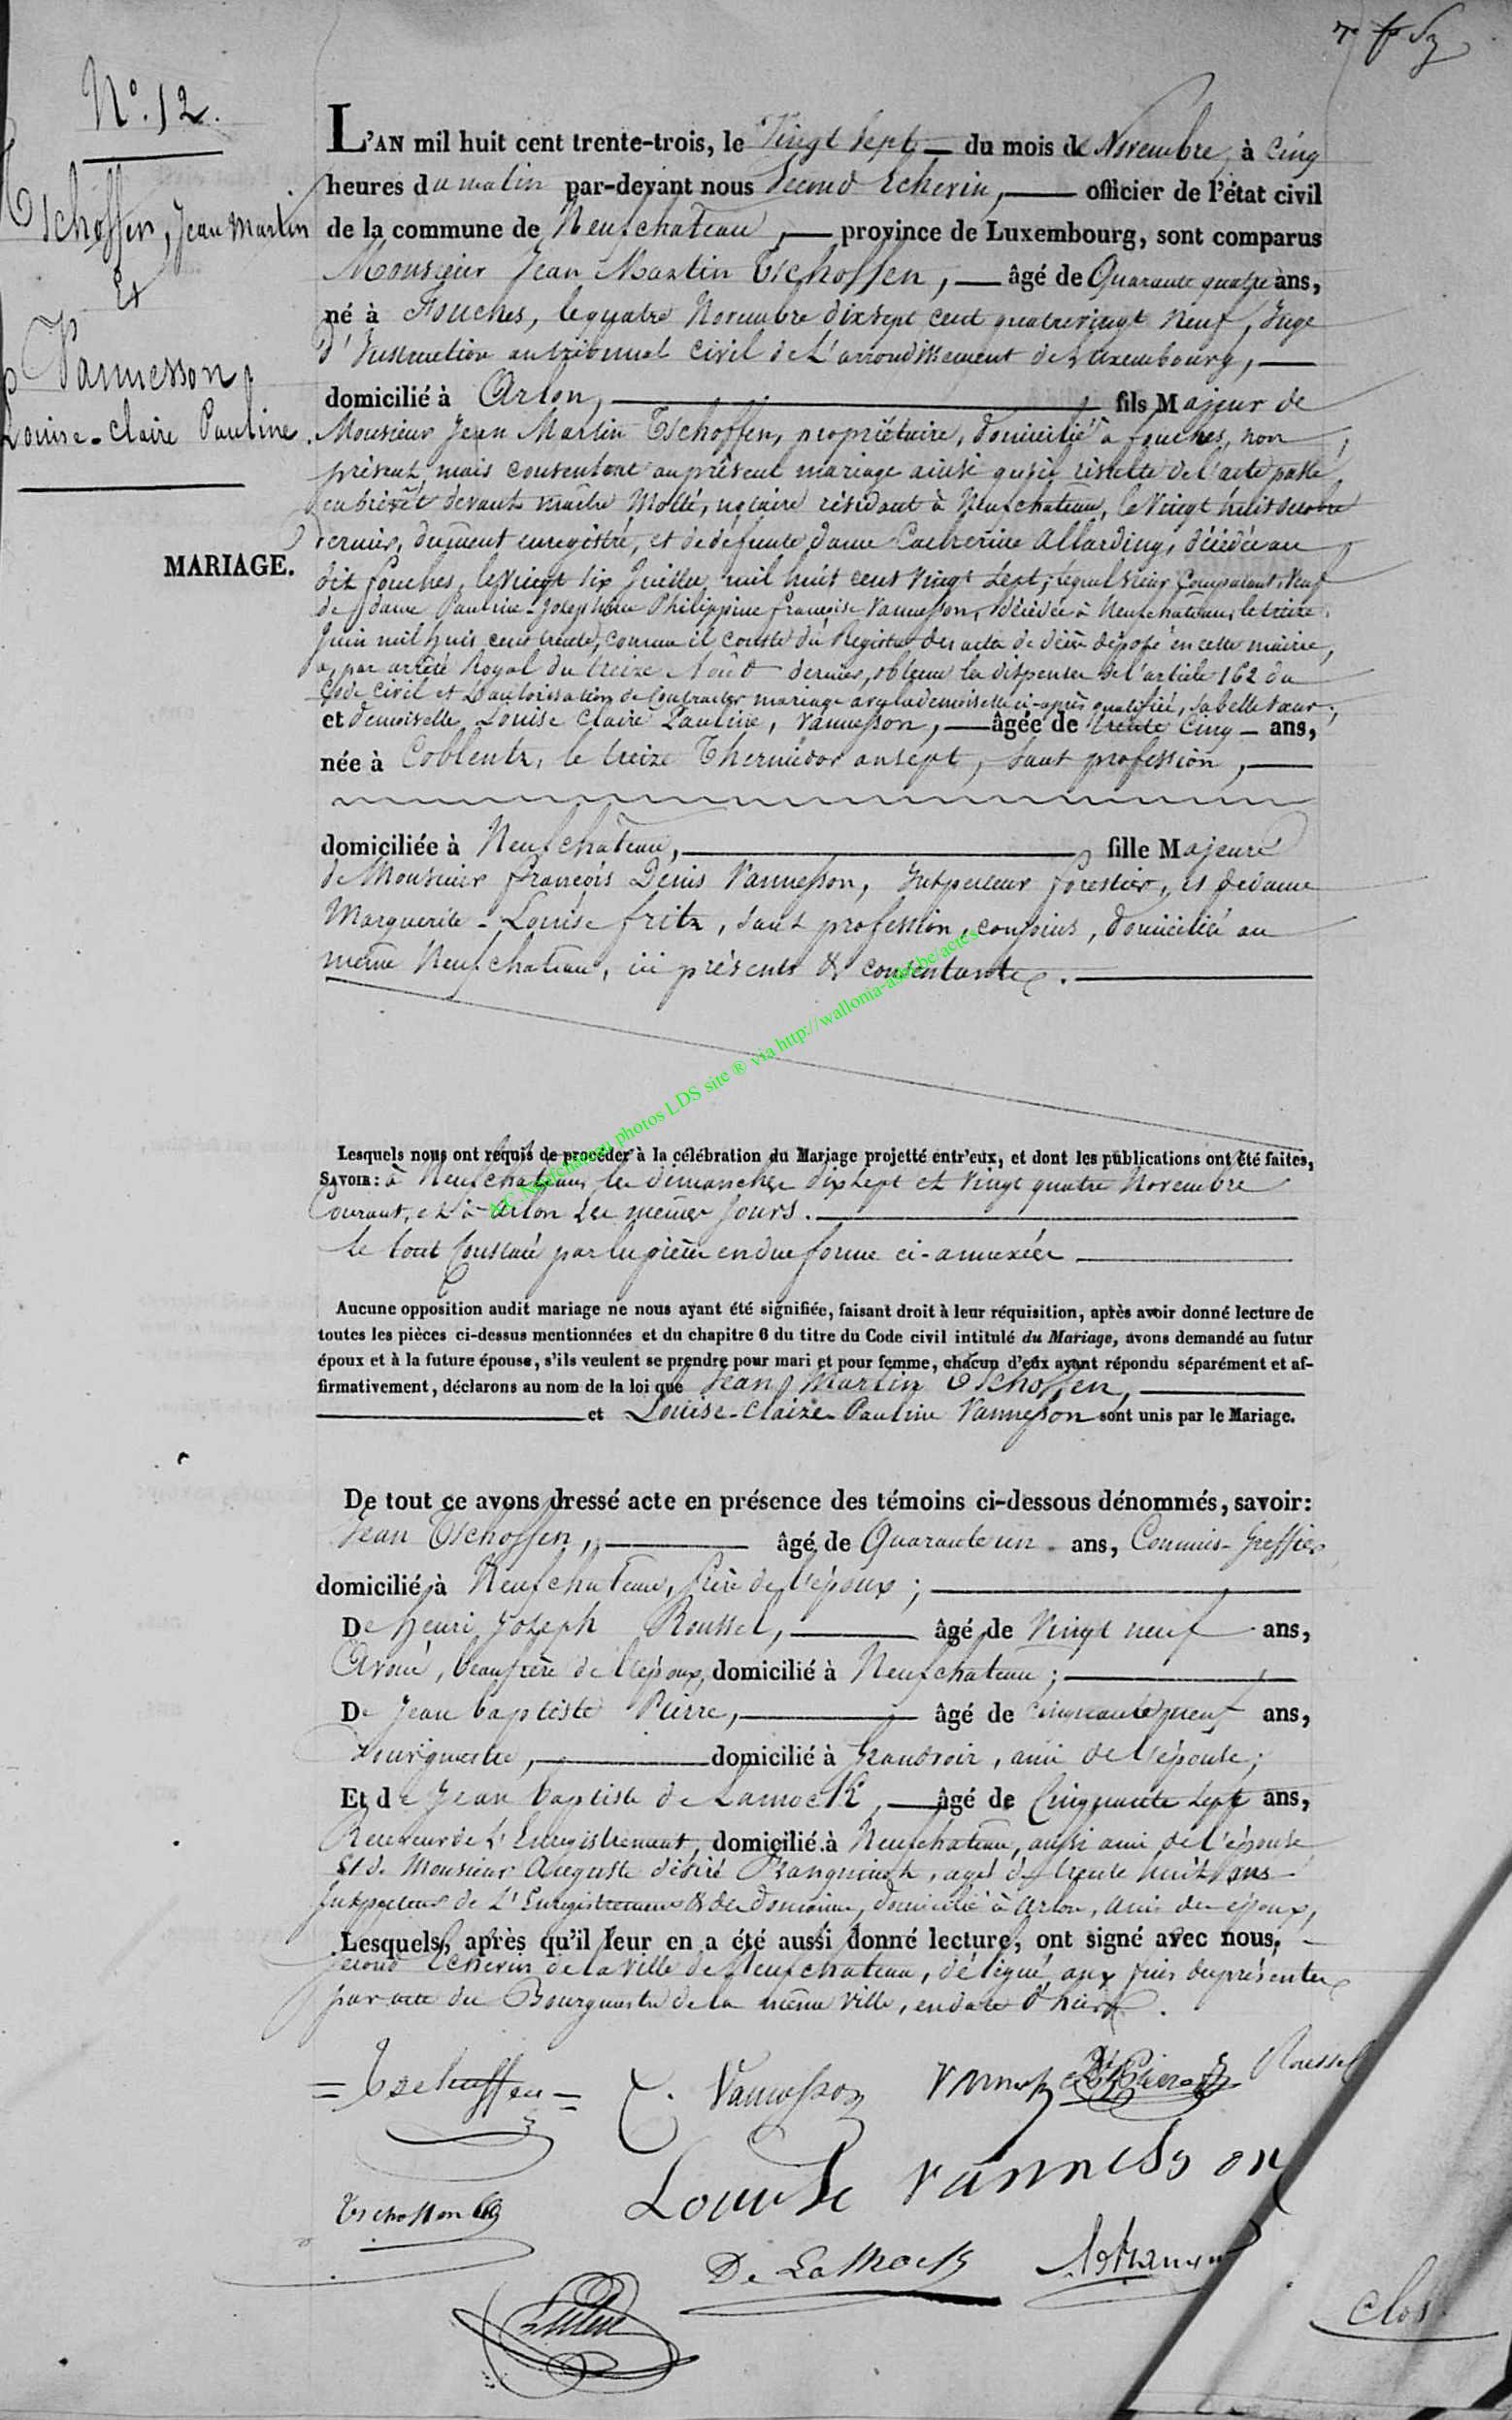 7e
N°. 12.
Tschoffen, Jean Martin
Et
Vannesson,
Louise-Claire Pauline.
MARIAGE.
L'AN mil huit cent trente-trois, le Vingt Sept — du mois de Novembre, à Cinq
heures du matin par-devant nous Second Echevin, — officier de l'état civil
de la commune de Neufchateau, — province de Luxembourg, sont comparus
Monsieur Jean Martin Tschoffen, — âgé de Quarante quatre ans,
né à Fouches, le quatre Novembre dix sept cent quatrevingt Neuf, Juge
d'Instruction au tribunal civil de L'arrondissement de Luxembourg, —
domicilié à Arlon, — fils Majeur de
Monsieur Jean Martin Tschoffen, propriétaire, domicilié à fouches, non
présent, mais consentant au présent mariage ainsi qu'il résulte de l'acte passé
en brévêt devant maître Motté, notaire résidant à Neufchateau, le Vingt huit octobre
dernier, dument enregistré, et de défunte dame Catherine Allarding, décédée au
dit fouches, le vingt six Juillet mil huit cent vingt Sept; lequel Sieur Comparant, Veuf
de dame Pauline-Josephine Philippine françoise Vannesson, décédée à Neufchateau, le treize
Juin mil huit cent trente, comme il conste du Registre des actes de décès déposé en cette mairie,
a, par arrêté Royal du treize Août dernier, obtenu la dispense de l'article 162 du
Code civil et L'autorisation de Contracter mariage avec la demoiselle ci-après qualifiée, sa belle sœur;
et demoiselle Louise Claire Pauline, Vannesson, — âgée de trente Cinq — ans,
née à Coblentz, le treize Thermidor an sept, sans profession, —
domiciliée à Neufchâteau, — fille Majeure
de Monsieur François Denis Vannesson, Inspecteur forestier, et de dame
Marguerite-Louise fritz, sans profession, conjoints, domiciliés au
même Neufchateau, ici présents & consentants. —
Lesquels nous ont requis de procéder à la célébration du Mariage projetté entr'eux, et dont les publications ont été faites,
SAVOIR: à Neufchateau, les dimanches dix Sept et Vingt quatre Novembre
Courant, et à Arlon les mêmes Jours. —
Le tout Constaté par les pièces en due forme ci-annexées —
Aucune opposition audit mariage ne nous ayant été signifiée, faisant droit à leur réquisition, après avoir donné lecture de
toutes les pièces ci-dessus mentionnées et du chapitre 6 du titre du Code civil intitulé du Mariage, avons demandé au futur
époux et à la future épouse, s'ils veulent se prendre pour mari et pour femme, chacun d'eux ayant répondu séparément et af-
firmativement, déclarons au nom de la loi que Jean Martin Tschoffen, —
— et Louise-Claire-Pauline Vannesson sont unis par le Mariage.
De tout ce avons dressé acte en présence des témoins ci-dessous dénommés, savoir:
Jean Tschoffen, — âgé de Quarante un ans, Commis-Greffier
domicilié à Neufchateau, frère de l'époux; —
De Henri Joseph Roussel, — âgé de Vingt neuf ans,
Avoué, beaufrère de l'époux, domicilié à Neufchateau; —
De Jean baptiste Pierre, — âgé de cinquante neuf ans,
Bourgmestre, — domicilié à Grandvoir, ami de l'épouse;
Et de Jean baptiste de Lamock, — âgé de Cinquante Sept ans,
Receveur de L'Enregistrement, domicilié à Neufchateau, aussi ami de l'épouse
Et de Monsieur Auguste désiré, agé de trente huit ans
Inspecteur de L'Enregistrement & des domaines, domicilié à Arlon, ami des époux,
Lesquels, après qu'il leur en a été aussi donné lecture, ont signé avec nous,
Second Echevin de la Ville de Neufchateau, délégué aux fins des présentes
par acte du Bourgmestre de la même Ville, en date d'hier.
Tschoffen
Vannesson
Roussel
Louise Vannesson
Tschoffen
De Lamock
clos
A.C. Neufchateau photos LDS site ® via http://wallonia-asbl.be/actes